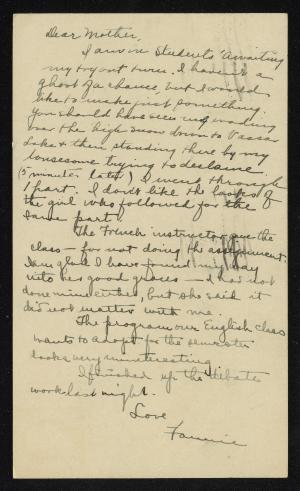 Dear Mother,
I am in Students' awaiting
my try out turn. I haven't a
ghost of a chance but I would
like to make just something.
You should have seen me wading
over the high snow down to Vassar
Lake & then standing there by my
lonesome trying to declaim.
(5 minutes later) I went through
1 part. I don't like the looks of
the girl who followed for the
same part.
The French instructor gave the
class — for not doing the assignment.
I am glad I have found my way
into her good graces — I had not
done mine either, but she said it
did not matter with me.
The program our English class
wants to adopt for the semester
looks very uninteresting
I finished up the debate
work last night.
Love
Fannie